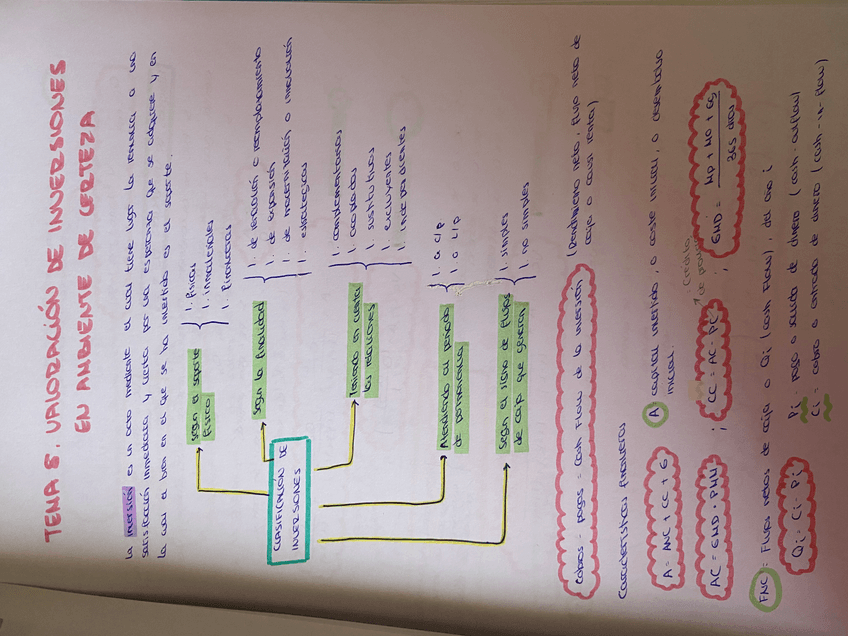 TEMA 5. VALORACIÓN DE INVERSIONES
EN AMBIENTE DE CERTEZA
La inversión es un acto mediante el cual tiene lugar la renuncia a una
satisfacción inmediata y cierta por una esperanza que se adquiere y en
la cual el bien en el que se ha invertido es el soporte.
CLASIFICACIÓN DE
INVERSIONES
Según el soporte
físico
1. Físicas
1. Inmateriales
1. Financieras
Según la finalidad
1. de renovación o reemplazamiento
1. de expansión
1. de modernización o innovación
1. estratégicas
Teniendo en cuenta
las relaciones
1. complementarias
1. acopladas
1. sustitutivas
1. excluyentes
1. independientes
Atendiendo al periodo
de permanencia
1. a c/p
1. a l/p
Según el signo de flujos
de caja que generan
1. simples
1. no simples
Cobros - pagos = Cash Flow de la inversión (Rendimiento neto, flujo neto de
caja o cuasi renta)
Características financieras
A = ANC + CC + G
A capital invertido, o coste inicial, o desembolso
inicial.
AC = GMD · PMM ; CC = AC - PC ; GMD = MP + MO + GG
365 días
FNC: Flujos netos de caja o Qi (cash Flow), del año i
Qi = Ci - Pi
Pi: pago o salida de dinero (cash - outflow)
Ci: cobro o entrada de dinero (cash - in - flow)